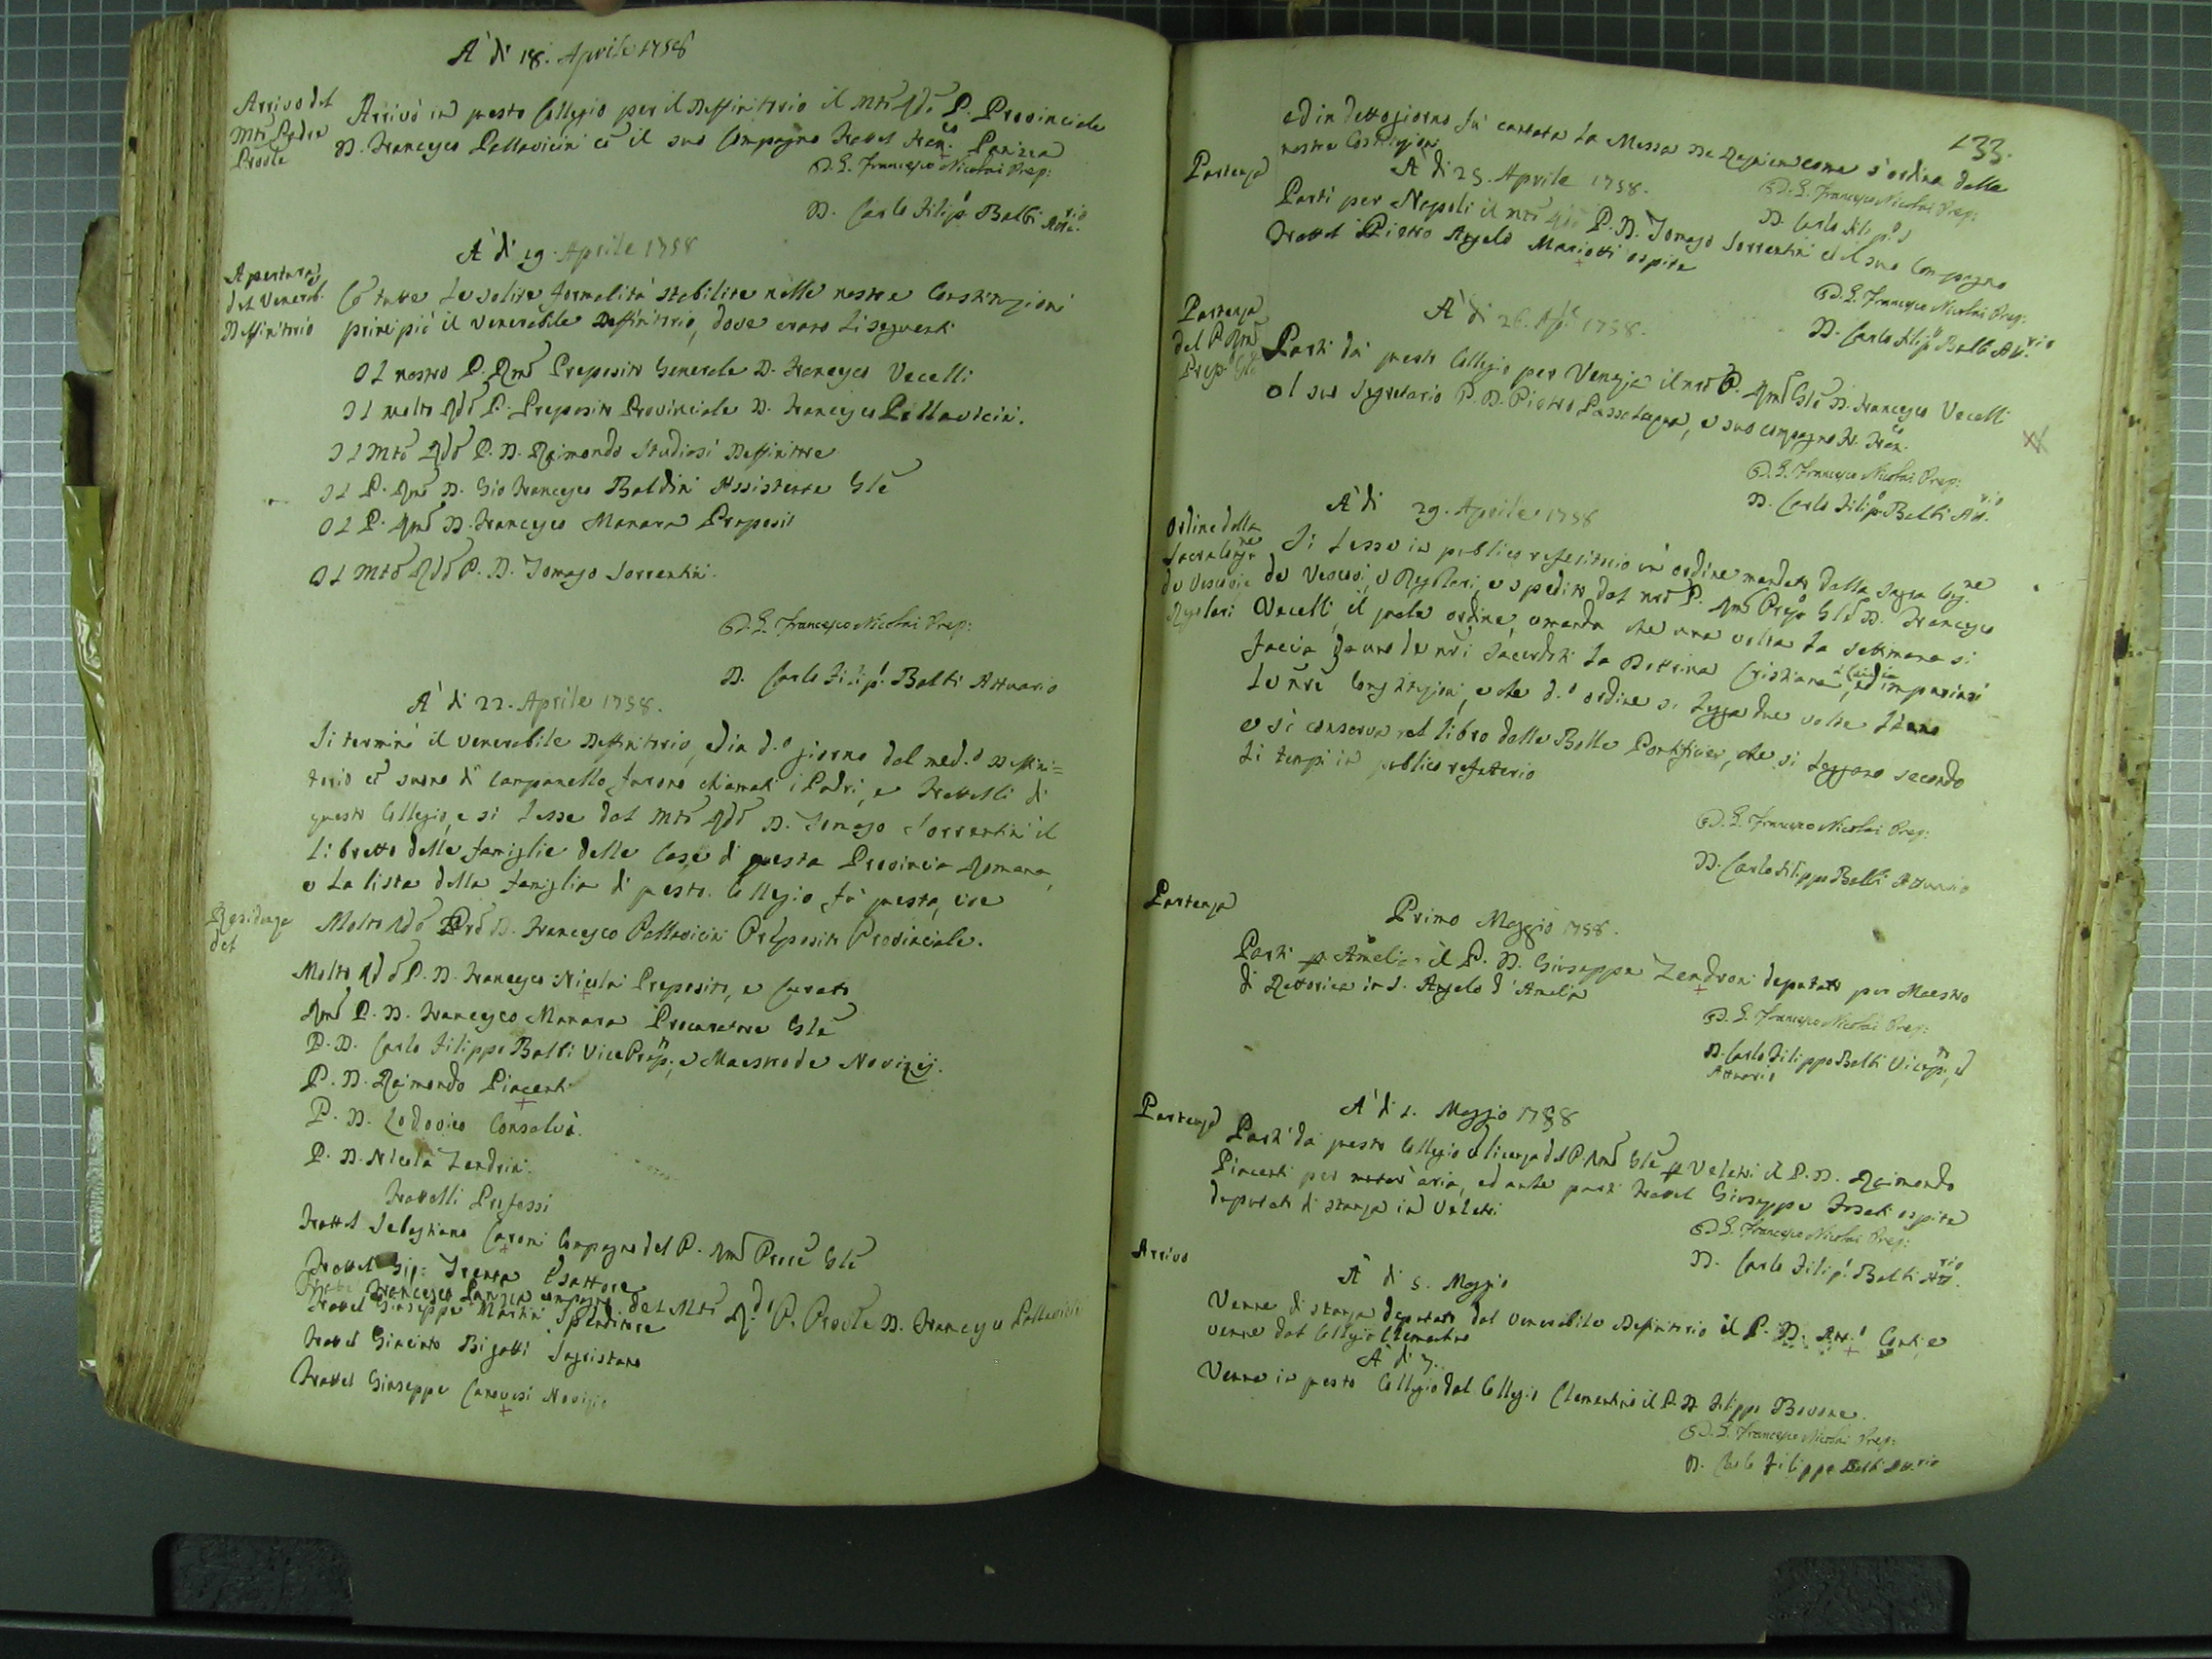 A dì 18. Aprile 1758
Arrivo del
Mtō Padre
Provle
Arrivò in questo Collegio per il Deffinitorio il Mtō Rdo P. Provinciale
D. Francesco Pallavicini cō il suo Compagno Fratel Fran.co Panizza
D. G. Francesco Nicolai Prep:
D. Carlo Filip.o Balbi Att.rio
A dì 19. Aprile 1758
Apertura
del Venerab.
Deffinitorio
Cō tutte le solite formalità stabilite nelle nostre Constituzioni
principiò il venerabile Deffinitorio, dove erano li seguenti
Il nostro P. Rmō Preposito Generale D. Francesco Vecelli
Il molto Rdō P. Preposito Provinciale D. Francesco Pallavicini.
Il Mtō Rdō P. D. Raimondo Studiosi Deffinitore
Il P. Rmō D. Gio Francesco Baldini Assistente Glē
Il P. Rmō D. Francesco Manara Preposit
Il Mtō Rdō P. D. Tomaso Sorrentini.
D. G. Francesco Nicolai Prep:
D. Carlo Filip.o Balbi Attuario
A dì 22. Aprile 1758.
Si terminò il venerabile Deffinitorio, ed in d.o giorno dal med.o Deffini=
torio cō suono di Campanello furono chiamati i Padri, e Fratelli di
questo Collegio, e si lesse dal Mtō Rdō D. Tomaso Sorrentini il
libretto delle famiglie delle Case di questa Provincia Romana,
e la lista della famiglia di questo Collegio fù questa, cioè
Residenza
del
Molto Rdō Prō D. Francesco Pallavicini Preposito Provinciale.
Molto Rdō P. D. Francesco Nicolai Preposito, e Curato
Rmō P. D. Francesco Manara Procuratore Glē
P. D. Carlo Filippo Balbi Vice Prep.o, e Maestro de Novizij.
P. D. Raimondo Piacenti
P. D. Lodovico Consalvi.
P. D. Nicola Zendrini.
Fratelli Professi
Fratel Sebastiano Caroni Compagno del P. Rmō Proce Glē
Fratel Gio: Trenta Esattore
Fratel Francesco Panizza compagno del Mtō R.do P. Provle D. Francesco Pallavicini
Fratel Giuseppe Martini Spenditore
Fratel Giacinto Bigatti Sagristano
Fratel Giuseppe Canovesi Novizio
133.
ed in detto giorno fù cantata la Messa de Requiem come s'ordina dalle
nostre Costituzioni
D. G. Francesco Nicolai Prep:
D. Carlo Filip.o
Partenza
A dì 25. Aprile 1758.
Partì per Napoli il Mtō Rdō P. D. Tomaso Sorrentini ed il suo Compagno
Fratel Pietro Angelo Mariotti ospite
D. G. Francesco Nicolai Prep:
D. Carlo Filip.o Balbi Att.rio
Partenza
del P. Rmō
Prep. Glē
A dì 26. Apl̄e 1758.
Partì da questo Collegio per Venezia il nrō P. Rmō Glē D. Francesco Vecelli
Il suo Segretario P. D. Pietro Passalacqua, e suo compagno Fr. Fran.co
D. G. Francesco Nicolai Prep:
D. Carlo Filip.o Balbi Att.rio
A dì 29. Aprile 1758
Ordine della
Sacra Cong.ne
de Vescovi e
Regolari
Si lesse in publico refettorio ūn ordine mandato dalla Sagra Cong.ne
de Vescovi, e Regolari, e spedito dal nrō P. Rmō Prep.o Glē D. Francesco
Vecelli, il quale ordine, comanda che una volta la settimana si
faccia da uno de nrī Sacerdoti la Dottrina Cristiana a laici, ed imparino
le nrē Constituzioni, e che d.o ordine si legga due volte l'anno
e si conserva nel libro delle Bolle Pontificie, che si leggono secondo
li tempi in publico refetterio
D. G. Francesco Nicolai Prep:
D. Carlo Filippo Balbi Attuario
Partenza
Primo Maggio 1758.
Partì p Amelia il P. D. Giuseppe Zendroni deputato per Maestro
di Rettorica in S. Angelo d'Amelia
D. G. Francesco Nicolai Prep:
D. Carlo Filippo Balbi Vicep.o, ed
Attuario
Partenza
A dì 2. Maggio 1758
Partì da questo Collegio cō licenza del P. Rmō Glē p Veletri il P. D. Raimondo
Piacenti per mutar aria, ed anche partì Fratel Giuseppe ospite
deputato di stanza in Veletri
D. G. Francesco Nicolai Prep:
D. Carlo Filip.o Balbi Att.rio
Arrivo
A dì 5. Maggio
Venne di stanza deputato dal venerabile Definitorio il P. D. Ant.o Conti, e
venne dal Collegio Clementino
A dì 7.
Venne in questo Collegio dal Collegio Clementino il P. D. Filippo Bovone.
D. G. Francesco Nicolai Prep:
D. Carlo Filippo Balbi Att.rio